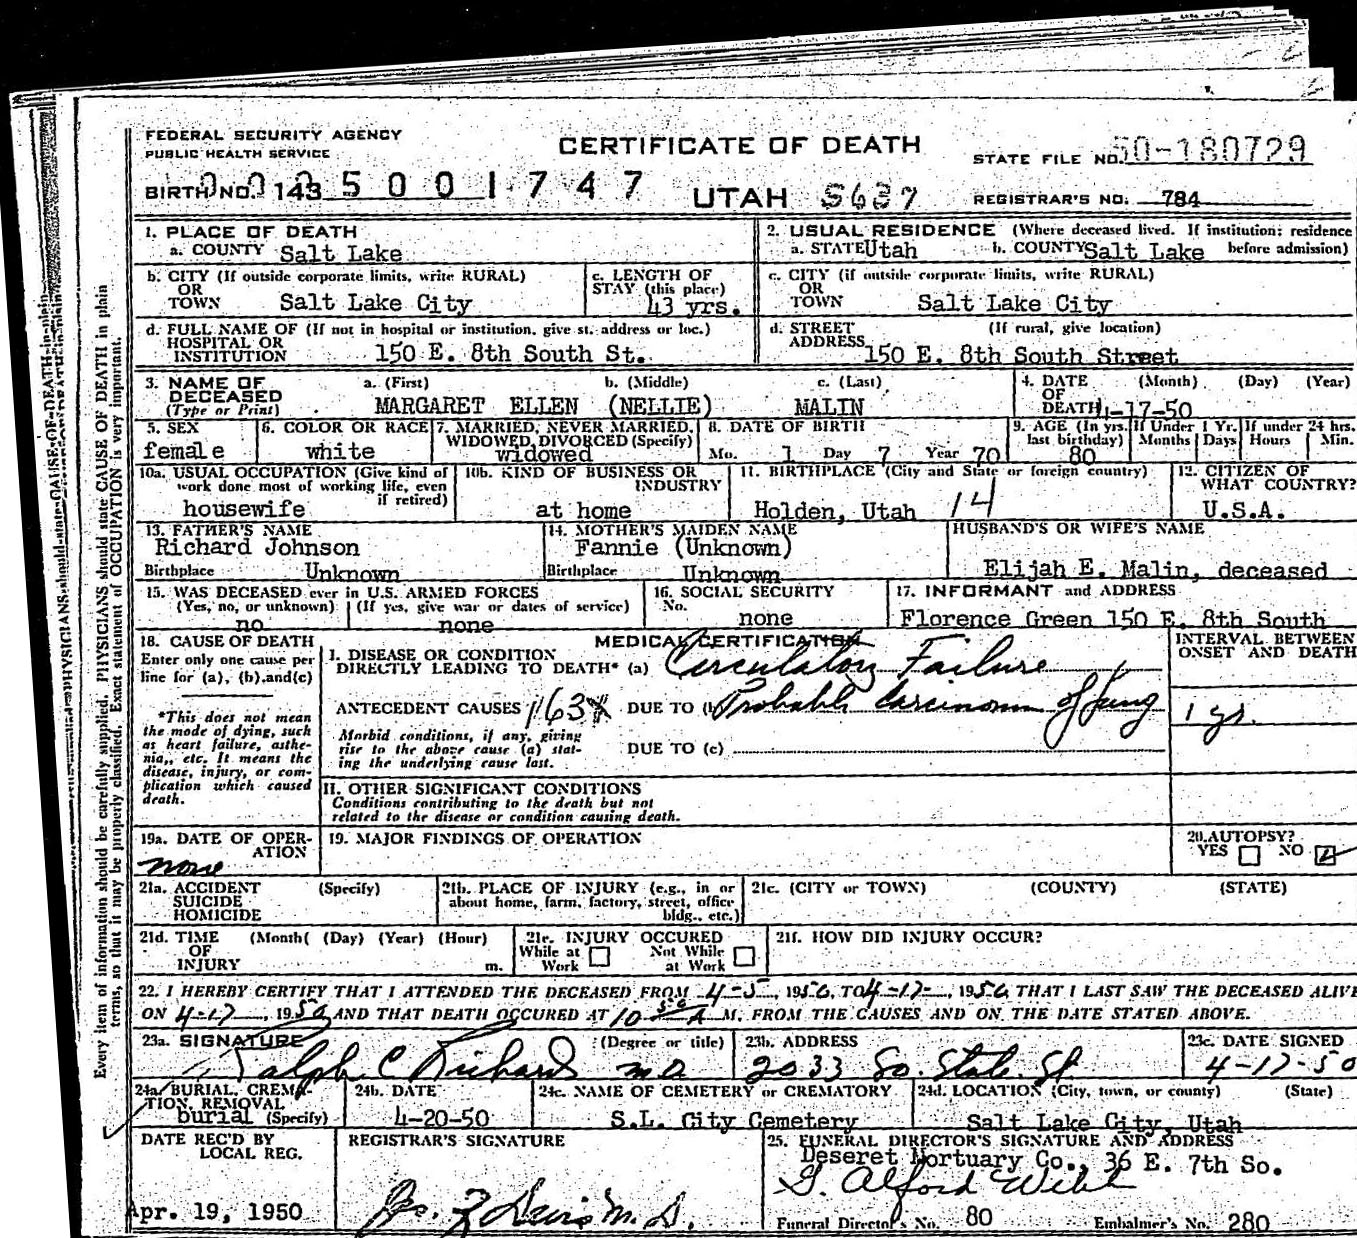 FEDERAL SECURITY AGENCY
PUBLIC HEALTH SERVICE
CERTIFICATE OF DEATH
STATE FILE NO. 50-180729
BIRTH NO. 143 5 0 0 1 7 4 7
UTAH S637
REGISTRAR'S NO. 784
1. PLACE OF DEATH
a. COUNTY Salt Lake
2. USUAL RESIDENCE (Where deceased lived. If institution: residence
a. STATE Utah b. COUNTY Salt Lake before admission)
b. CITY (If outside corporate limits, write RURAL)
OR
TOWN Salt Lake City
c. LENGTH OF
STAY (this place)
43 yrs.
c. CITY (if outside corporate limits, write RURAL)
OR
TOWN Salt Lake City
d. FULL NAME OF (If not in hospital or institution, give st. address or loc.)
HOSPITAL OR
INSTITUTION 150 E. 8th South St.
d. STREET (If rural, give location)
ADDRESS 150 E. 8th South Street
3. NAME OF DECEASED (Type or Print)
a. (First) b. (Middle) c. (Last)
MARGARET ELLEN (NELLIE) MALIN
4. DATE OF DEATH (Month) (Day) (Year)
4-17-50
5. SEX
female
6. COLOR OR RACE
white
7. MARRIED, NEVER MARRIED,
WIDOWED, DIVORCED (Specify)
widowed
8. DATE OF BIRTH
Mo. 1 Day 7 Year 70
9. AGE (In yrs. last birthday)
80
If Under 1 Yr. Months Days
If under 24 hrs. Hours Min.
10a. USUAL OCCUPATION (Give kind of
work done most of working life, even
if retired)
housewife
10b. KIND OF BUSINESS OR
INDUSTRY
at home
11. BIRTHPLACE (City and State or foreign country)
Holden, Utah 14
12. CITIZEN OF
WHAT COUNTRY?
U.S.A.
13. FATHER'S NAME
Richard Johnson
Birthplace Unknown
14. MOTHER'S MAIDEN NAME
Fannie (Unknown)
Birthplace Unknown
HUSBAND'S OR WIFE'S NAME
Elijah E. Malin, deceased
15. WAS DECEASED ever in U.S. ARMED FORCES
(Yes, no, or unknown) (If yes, give war or dates of service)
no none
16. SOCIAL SECURITY
No.
none
17. INFORMANT and ADDRESS
Florence Green 150 E. 8th South
18. CAUSE OF DEATH
Enter only one cause per
line for (a), (b), and (c)
*This does not mean
the mode of dying, such
as heart failure, asthe-
nia,, etc. It means the
disease, injury, or com-
plication which caused
death.
MEDICAL CERTIFICATION
I. DISEASE OR CONDITION
DIRECTLY LEADING TO DEATH* (a) Circulatory Failure
ANTECEDENT CAUSES 163X DUE TO (b) Probable Carcinoma of lung
Morbid conditions, if any, giving
rise to the above cause (a) stat-
ing the underlying cause last.
DUE TO (c)
INTERVAL BETWEEN
ONSET AND DEATH
1 yr.
II. OTHER SIGNIFICANT CONDITIONS
Conditions contributing to the death but not
related to the disease or condition causing death.
19a. DATE OF OPER-
ATION
none
19. MAJOR FINDINGS OF OPERATION
20. AUTOPSY?
YES NO
21a. ACCIDENT (Specify)
SUICIDE
HOMICIDE
21b. PLACE OF INJURY (e.g., in or
about home, farm, factory, street, office
bldg., etc.)
21c. (CITY or TOWN) (COUNTY) (STATE)
21d. TIME (Month( (Day) (Year) (Hour)
OF
INJURY m.
21e. INJURY OCCURED
While at Work Not While at Work
21f. HOW DID INJURY OCCUR?
22. I HEREBY CERTIFY THAT I ATTENDED THE DECEASED FROM 4-5, 1950, TO 4-17-, 1950, THAT I LAST SAW THE DECEASED ALIVE
ON 4-17, 1950, AND THAT DEATH OCCURED AT 10 50 A M. FROM THE CAUSES AND ON THE DATE STATED ABOVE.
23a. SIGNATURE (Degree or title)
Ralph C Richards M D
23b. ADDRESS
2033 So. State St
23c. DATE SIGNED
4-17-50
24a. BURIAL, CREMA-
TION, REMOVAL
burial (Specify)
24b. DATE
4-20-50
24c. NAME OF CEMETERY or CREMATORY
S.L. City Cemetery
24d. LOCATION (City, town, or county) (State)
Salt Lake City, Utah
DATE REC'D BY
LOCAL REG.
Apr. 19, 1950
REGISTRAR'S SIGNATURE
M.D.
25. FUNERAL DIRECTOR'S SIGNATURE AND ADDRESS
Deseret Mortuary Co., 36 E. 7th So.
Alford
Funeral Director's No. 80 Embalmer's No. 280
Every item of information should be carefully supplied. PHYSICIANS should state CAUSE OF DEATH in plain
terms, so that it may be properly classified. Exact statement of OCCUPATION is very important.